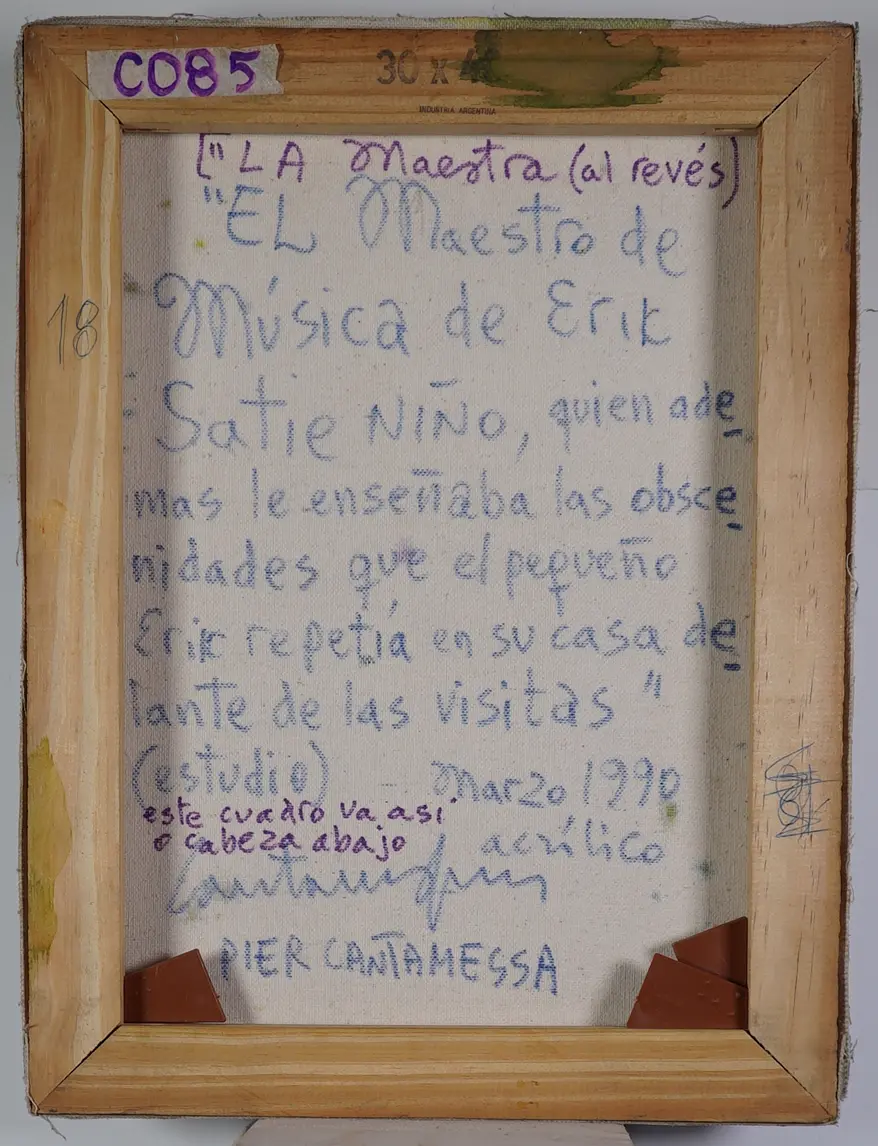 C085
30 x
INDUSTRIA ARGENTINA
["LA Maestra (al revés)
"EL Maestro de
Música de Erik
18
Satie NIÑO, quien ade
mas le enseñaba las obsce
nidades que el pequeño
Erik repetía en su casa de
lante de las visitas"
(estudio) Marzo 1990
este cuadro va así
o cabeza abajo
acrílico
PIER CANTAMESSA